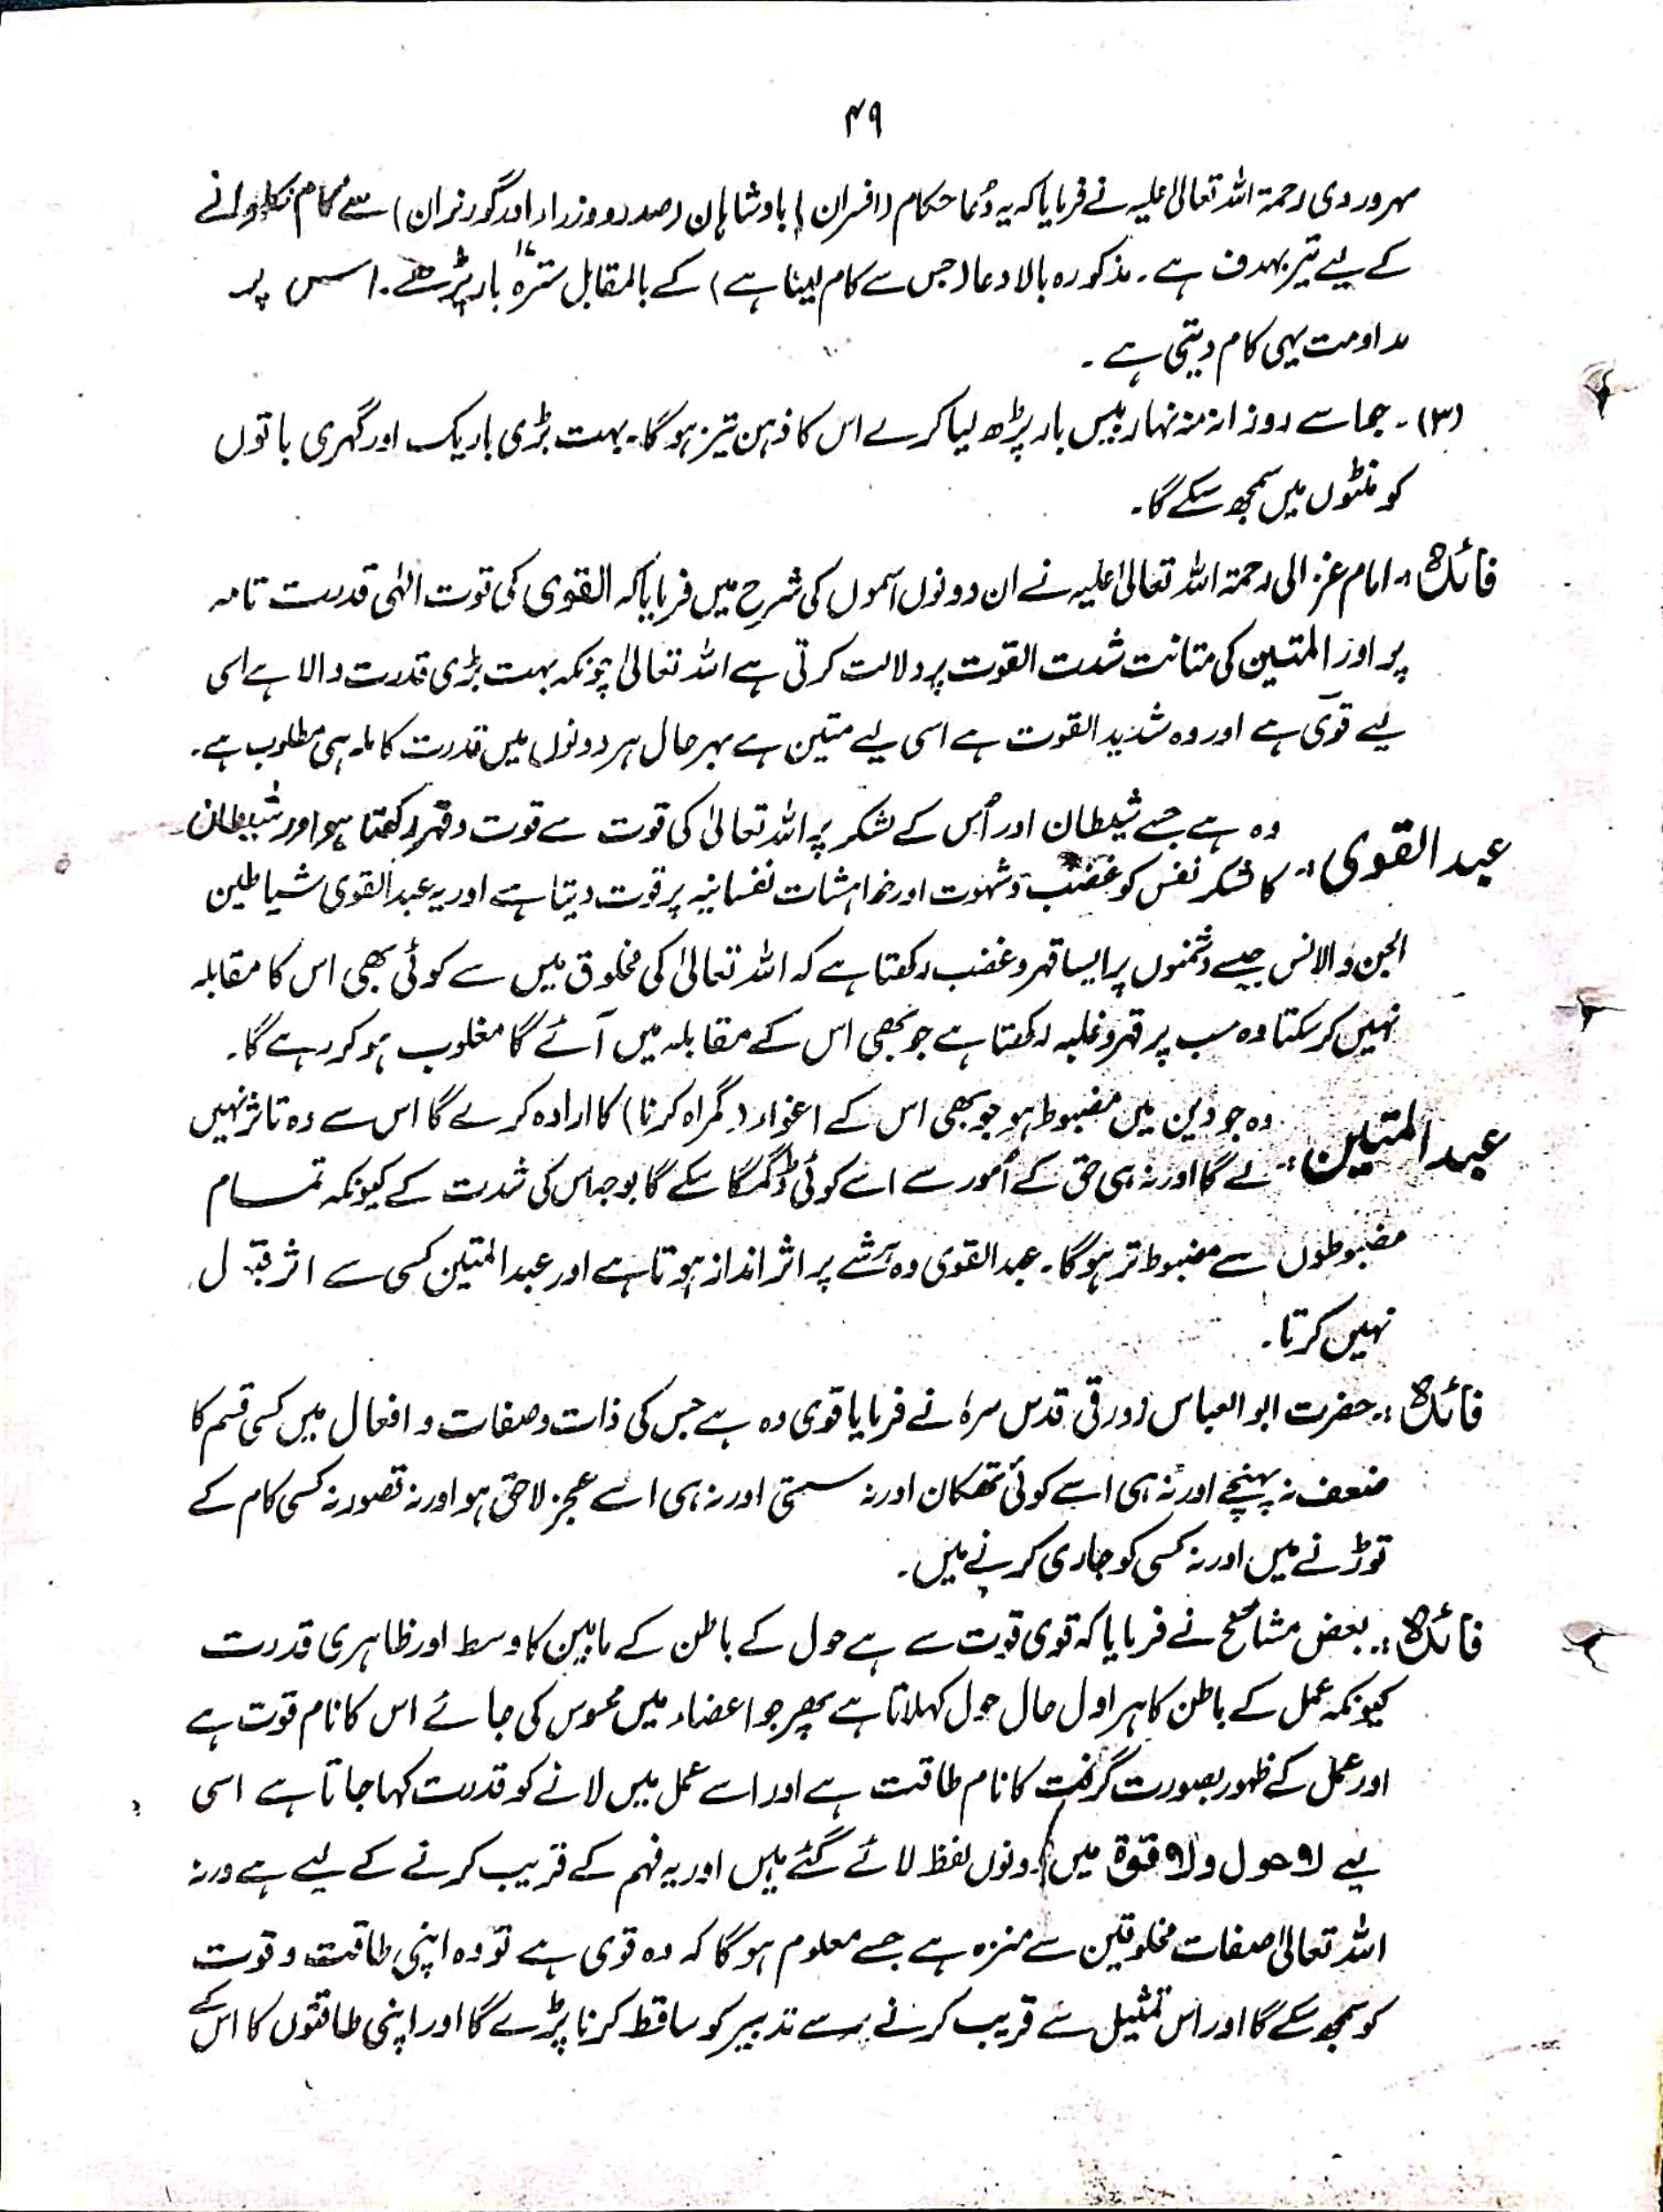 ۴۹
سہروردی رحمۃ اللہ تعالیٰ علیہ نے فرمایا کہ یہ دُعا حکام (افسران) بادشاہان (صدر و وزراء اور گورنران) سے کام نکلوانے
کے لیے تیر بہدف ہے ۔ مذکورہ بالا دعا (جس سے کام لینا ہے) کے بالمقابل سترہ ۱۷ بار پڑھے ۔ اس پر
مداومت یہی کام دیتی ہے ۔
(۳) ۔ جو اسے روزانہ نہار بیس بار پڑھ لیا کرے اس کا ذہن تیز ہوگا ۔ بہت بڑی باریک اور گہری باتوں
کو منٹوں میں سمجھ سکے گا ۔
فائدہ :۔ امام غزالی رحمۃ اللہ تعالیٰ علیہ نے ان دونوں اسموں کی شرح میں فرمایا کہ القوی کی قوت الٰہی قدرت تامہ
پر اور المتین کی متانت شدت القوت پر دلالت کرتی ہے اللہ تعالیٰ چونکہ بہت بڑی قدرت والا ہے اسی
لیے قوی ہے اور وہ شدید القوت ہے اسی لیے متین ہے بہرحال ہر دونوں میں قدرت کاملہ ہی مطلوب ہے ۔
عبد القوی :۔ وہ ہے جسے شیطان اور اُس کے لشکر پر اللہ تعالیٰ کی قوت سے قوت و قہر رکھتا ہو اور شیطان
کا لشکر نفس کو غضب و شہوت اور خواہشات نفسانیہ پر قوت دیتا ہے اور یہ عبد القوی شیاطین
الجن والانس جیسے دشمنوں پر ایسا قہر و غضب رکھتا ہے کہ اللہ تعالیٰ کی مخلوق میں سے کوئی بھی اس کا مقابلہ
نہیں کر سکتا وہ سب پر قہر و غلبہ رکھتا ہے جو بھی اس کے مقابلہ میں آئے گا مغلوب ہو کر رہے گا ۔
عبد المتین :۔ وہ جو دین میں مضبوط ہو جو بھی اس کے اغواء (گمراہ کرنا) کا ارادہ کرے گا اس سے وہ تاثر نہیں
لے گا اور نہ ہی حق کے اُمور سے اسے کوئی ڈگمگا سکے گا بوجہ اس کی شدت کے کیونکہ تمام
مضبوطوں سے مضبوط تر ہوگا ۔ عبد القوی وہ ہر شے پر اثر انداز ہوتا ہے اور عبد المتین کسی سے اثر قبول
نہیں کرتا ۔
فائدہ :۔ حضرت ابو العباس زورقی قدس سرہٗ نے فرمایا قوی وہ ہے جس کی ذات و صفات و افعال میں کسی قسم کا
ضعف نہ پہنچے اور نہ ہی اسے کوئی تھکان اور نہ سستی اور نہ ہی اسے عجز لاحق ہو اور نہ قصور نہ کسی کام کے
توڑنے میں اور نہ کسی کو جاری کرنے میں ۔
فائدہ :۔ بعض مشائخ نے فرمایا کہ قوی قوت سے ہے حول کے باطن کے مابین کا وسط اور ظاہری قدرت
کیونکہ عمل کے باطن کا ہر اول حال حول کہلاتا ہے پھر جو اعضاء میں محسوس کی جائے اس کا نام قوت ہے
اور عمل کے ظہور بصورت گرفت کا نام طاقت ہے اور اسے عمل میں لانے کو قدرت کہا جاتا ہے اسی
لیے لا حول ولا قوۃ میں دونوں لفظ لائے گئے ہیں اور یہ فہم کے قریب کرنے کے لیے ہے ورنہ
اللہ تعالیٰ صفات مخلوقین سے منزہ ہے جسے معلوم ہوگا کہ وہ قوی ہے تو وہ اپنی طاقت و قوت
کو سمجھ سکے گا اور اس تمثیل سے قریب کرنے سے تدبیر کو ساقط کرنا پڑے گا اور اپنی طاقتوں کا اس کے